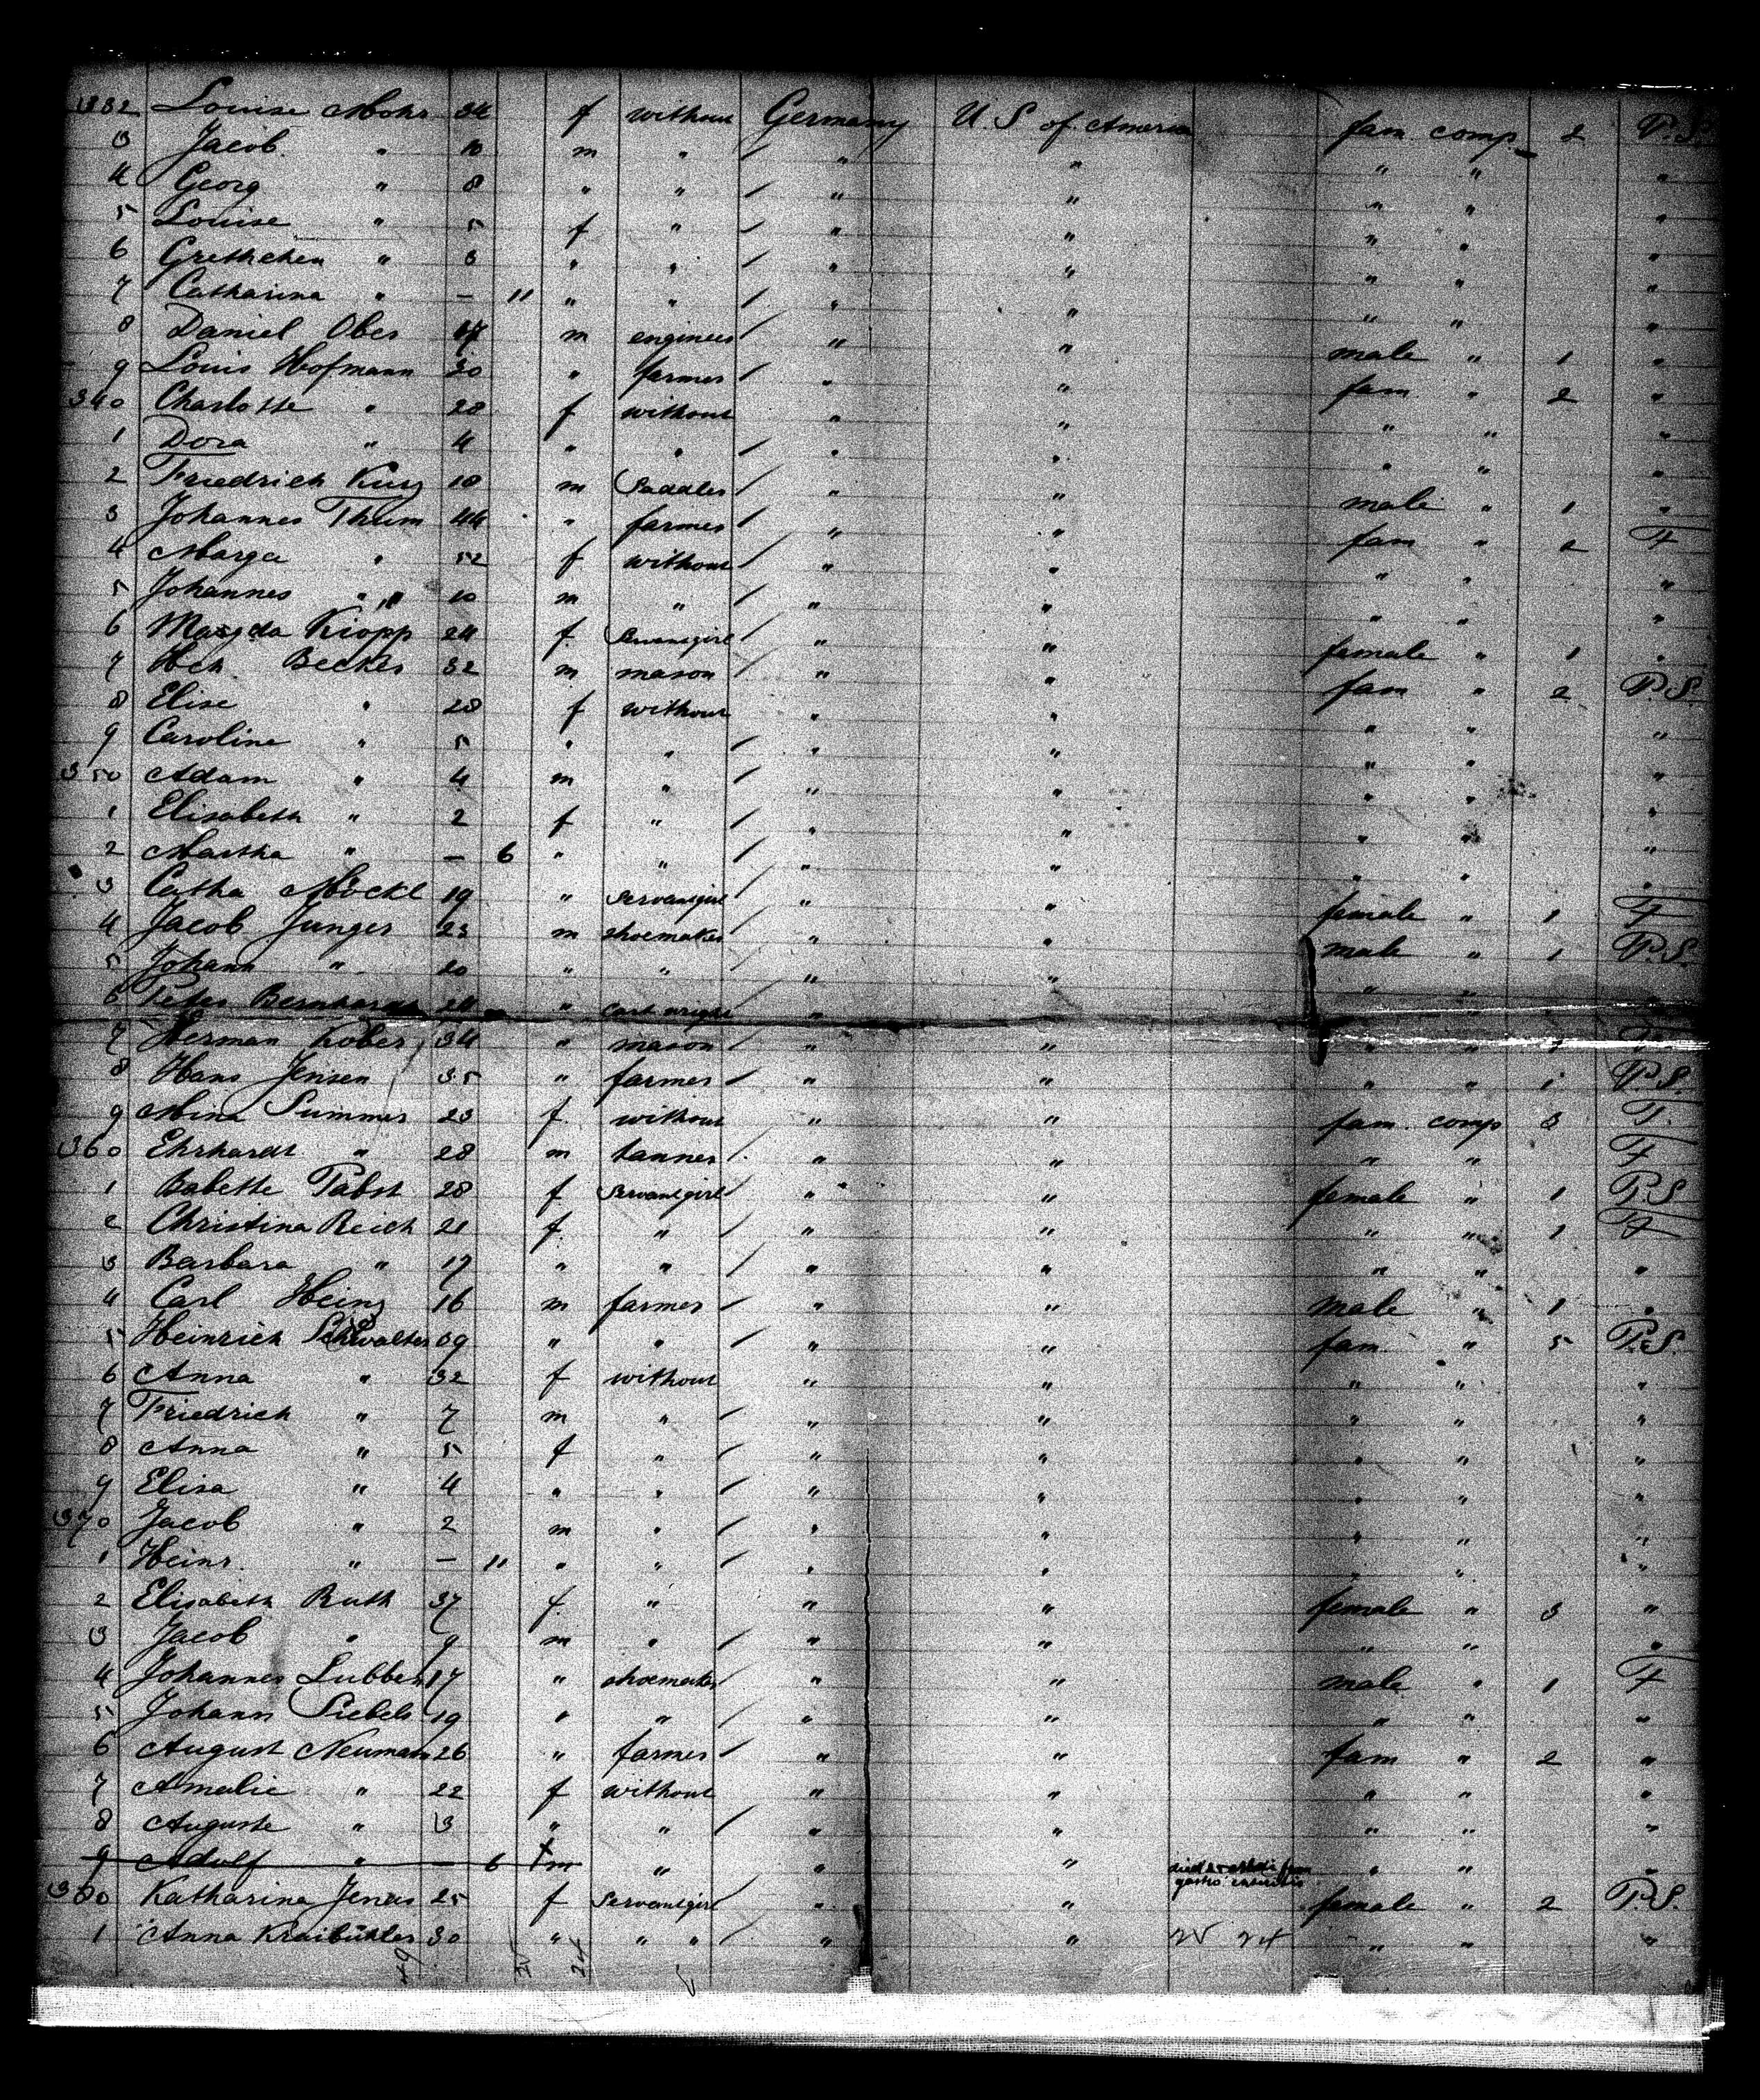 332 Louise Mohr 34 f without Germany U. S of America fam. comp. 2 P.S.
3 Jacob " 10 m " " " " " "
4 Georg " 8 " " " " " " "
5 Louise " 5 f " " " " " "
6 Grethchen " 3 " " " " " " "
7 Catharina " — 11 " " " " " " "
8 Daniel Ober m engineer " " male " 1 "
9 Louis Hofmann 30 " farmer " " fam " 2 "
340 Charlotte " 28 f without " " " " "
1 Dora " 4 " " " " " " "
2 Friedrich Kurz 18 m Saddler " " male " 1 "
3 Johannes Thum 44 " farmer " " fam " 2 F
4 Marga " 52 f without " " " " "
5 Johannes " " 10 m " " " " " "
6 Magda Kropp 24 f. Servantgirl " " female " 1 "
7 Hch Becker 32 m mason " " fam " 2 P.S.
8 Elise " 28 f without " " " " "
9 Caroline " 5 " " " " " " "
350 Adam " 4 m " " " " " "
1 Elisabeth " 2 f " " " " " "
2 Martha " — 6 " " " " " " "
3 Catha Möckl 19 " Servantgirl " " female " 1 F
4 Jacob Junger 23 m shoemaker " " male " 1 P.S.
5 Johann " 20 " " " " " "
6 Peter Bernhardt 24 " cartwright "
7 Herman Kober 34 " mason " " " " 1
8 Hans Jensen 35 " farmer " " " " 1 P.S.
9 Mina Summer 23 f. without " " fam. comp 3
360 Ehrhardt " 28 m tanner " " " " F
1 Babette Pabst 28 f Servantgirl " " female " 1 P.S
2 Christina Reich 21 f. " " " " " 1 F
3 Barbara " 17 " " " " " " "
4 Carl Heinz 16 m farmer " " male " 1 "
5 Heinrich Schwalter 39 " " " " fam. " 5 P.S.
6 Anna " 32 f without " " " " "
7 Friedrich " 7 m " " " " " "
8 Anna " 5 f " " " " " "
9 Elisa " 4 " " " " " " "
370 Jacob " 2 m " " " " " "
1 Heinr. " — 11 " " " " " " "
2 Elisabeth Ruth 37 f. " " " female " 3 "
3 Jacob " 9 m " " " " " "
4 Johannes Lubben 17 " shoemaker " " male " 1 F
5 Johann Siebels 19 " " " " " " "
6 August Neumann 26 " farmer " " fam " 2 "
7 Amalie " 22 f without " " " " "
8 Auguste " 3 " " " " " " "
9 Adolf " — 6 m " " " died from gastro enteritis " " "
380 Katharina Jenas 25 f Servantgirl " " female " 2 P.S.
1 Anna Kraibühler 30 " " " " " 25 24 " " "
49 25 24